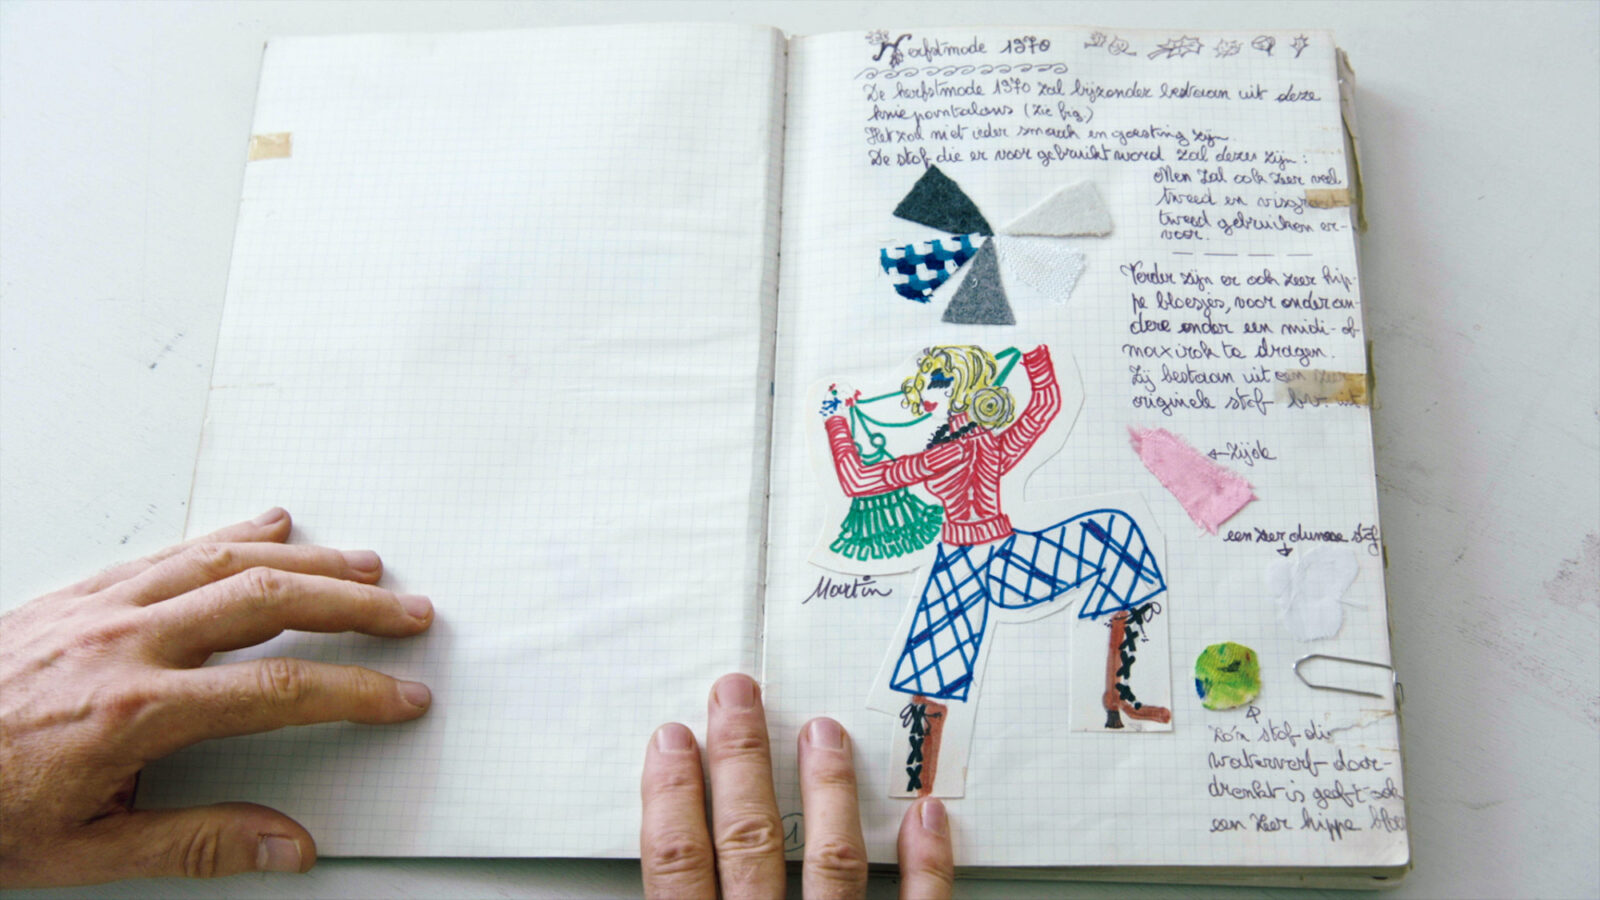 Herfstmode 1970
De herfstmode 1970 zal bijzonder bestaan uit deze
kniepantalons (zie fig.)
Het zal niet ieder smaak en goesting zijn.
De stof die er voor gebruikt word zal deze zijn:
Men zal ook zeer veel
tweed en visgraat
tweed gebruiken er-
voor.
Verder zijn er ook zeer hip-
pe bloesjes, voor onder an-
dere onder een midi- of
maxirok te dragen.
Zij bestaan uit een zeer
originele stof bv. uit
←zijde
een zeer dunne stof
Martin
Zo'n stof die
waterverf door-
drenkt is geeft ook
een zeer hippe
1